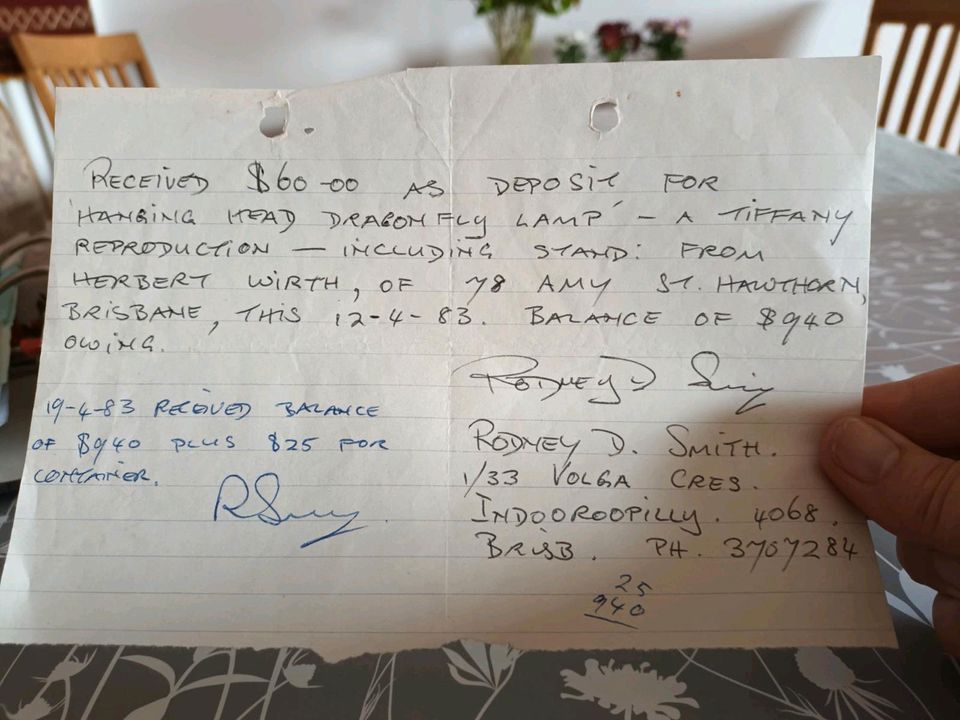 RECEIVED $60-00 AS DEPOSIT FOR
'HANGING HEAD DRAGONFLY LAMP' - A TIFFANY
REPRODUCTION - INCLUDING STAND: FROM
HERBERT WIRTH, OF 78 AMY ST. HAWTHORN,
BRISBANE, THIS 12-4-83. BALANCE OF $940
OWING.
RODNEY D Smith
19-4-83 RECEIVED BALANCE
OF $940 PLUS $25 FOR
CONTAINER.
RSmith.
RODNEY D. SMITH.
1/33 VOLGA CRES.
INDOOROOPILLY. 4068.
BRISB. PH. 3707284
25
940